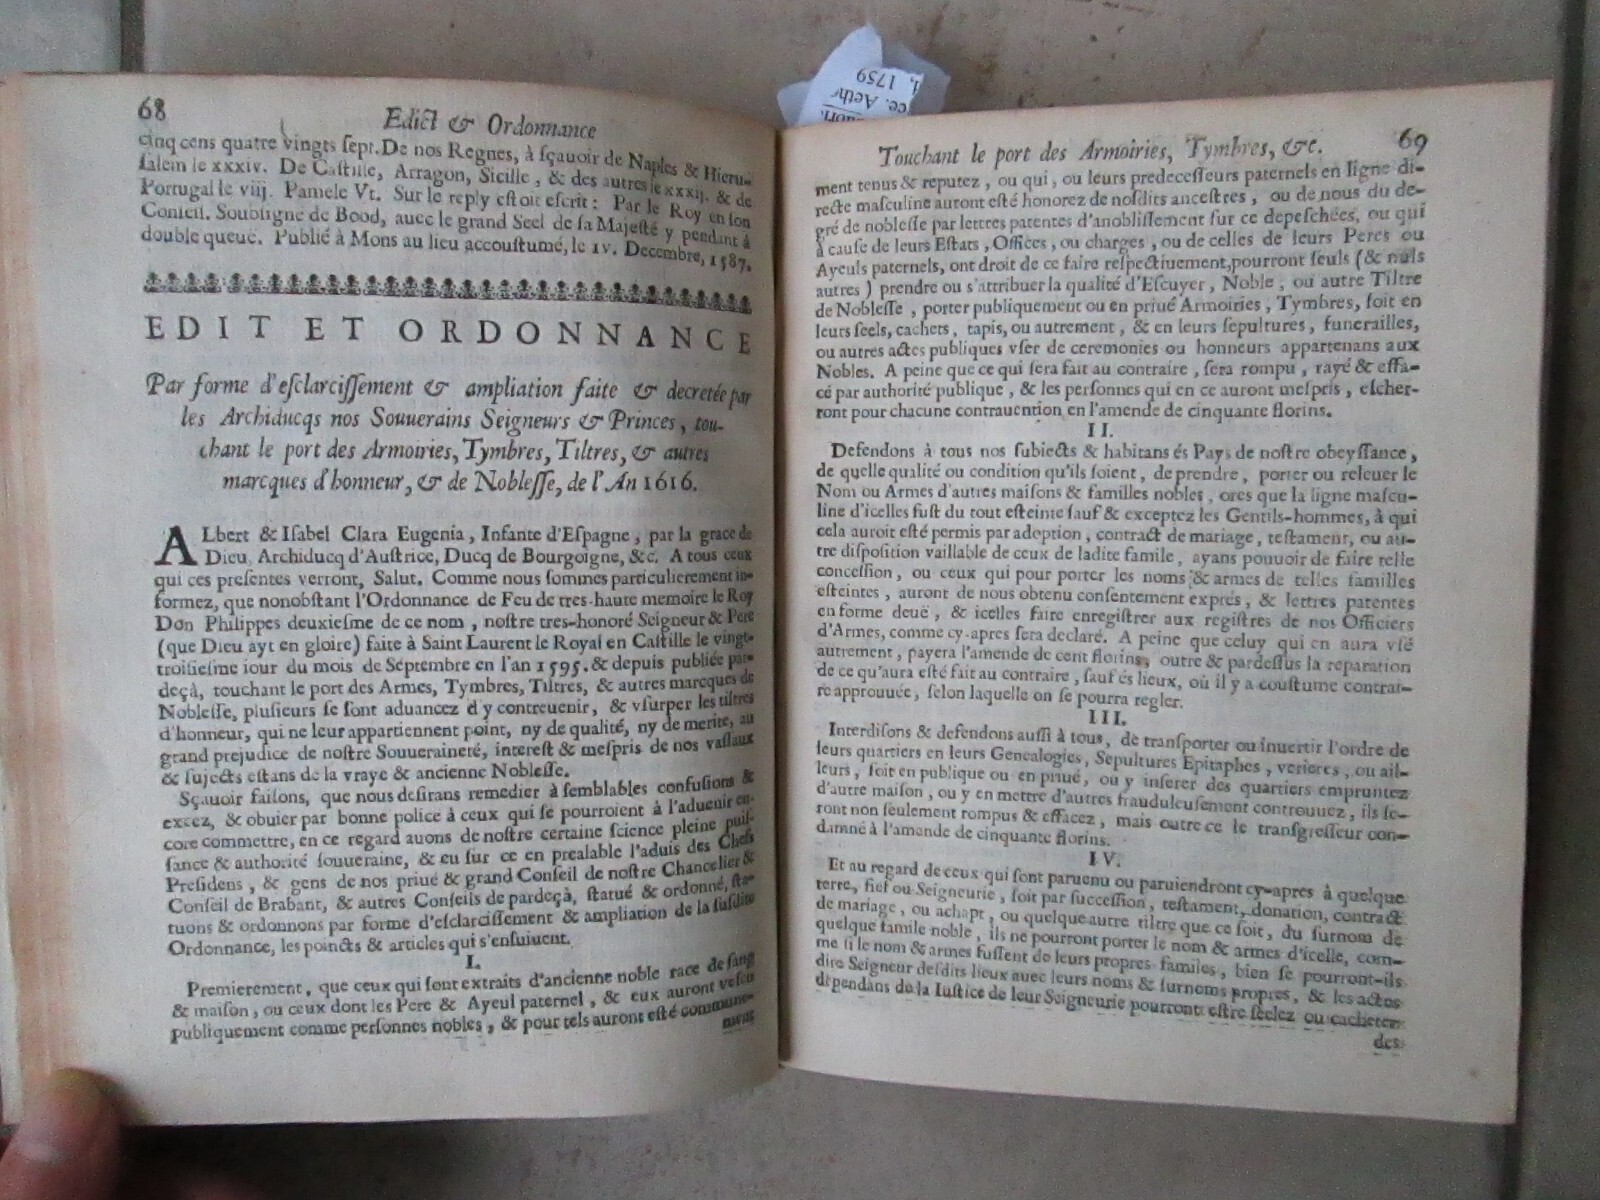 68
Edict & Ordonnance
cinq cens quatre vingts ſept. De nos Regnes, à ſçauoir de Naples & Hieru-
ſalem le xxxiv. De Caſtille, Arragon, Sicille, & des autres le xxxij. & de
Portugal le viij. Pamele Vt. Sur le reply eſtoit eſcrit: Par le Roy en ſon
Conſeil. Soubſigne de Bood, auec le grand Seel de ſa Majeſté y pendant à
double queuë. Publié à Mons au lieu accouſtumé, le iv. Decembre, 1587.
EDIT ET ORDONNANCE
Par forme d'eſclarciſſement & ampliation faite & decretée par
les Archiducqs nos Souuerains Seigneurs & Princes, tou-
chant le port des Armoiries, Tymbres, Tiltres, & autres
marcques d'honneur, & de Nobleſſe, de l'An 1616.
ALbert & Iſabel Clara Eugenia, Infante d'Eſpagne, par la grace de
Dieu, Archiducq d'Auſtrice, Ducq de Bourgoigne, &c. A tous ceux
qui ces preſentes verront, Salut. Comme nous ſommes particulierement in-
formez, que nonobſtant l'Ordonnance de Feu de tres-haute memoire le Roy
Don Philippes deuxieſme de ce nom, noſtre tres-honoré Seigneur & Pere
(que Dieu ayt en gloire) faite à Saint Laurent le Royal en Caſtille le vingt-
troiſieſme iour du mois de Septembre en l'an 1595. & depuis publiée par-
deçà, touchant le port des Armes, Tymbres, Tiltres, & autres marcques de
Nobleſſe, pluſieurs ſe ſont aduancez d'y contreuenir, & vſurper les tiltres
d'honneur, qui ne leur appartiennent point, ny de qualité, ny de merite, au
grand prejudice de noſtre Souueraineté, intereſt & meſpris de nos vaſſaux
& ſujects eſtans de la vraye & ancienne Nobleſſe.
Sçauoir faiſons, que nous deſirans remedier à ſemblables confuſions &
excez, & obuier par bonne police à ceux qui ſe pourroient à l'aduenir en-
core commettre, en ce regard auons de noſtre certaine ſcience pleine puiſ-
ſance & authorité ſouueraine, & eu ſur ce en prealable l'aduis des Chefs
Preſidens, & gens de nos priué & grand Conſeil de noſtre Chancelier &
Conſeil de Brabant, & autres Conſeils de pardeçà, ſtatué & ordonné, ſta-
tuons & ordonnons par forme d'eſclarciſſement & ampliation de la ſuſdite
Ordonnance, les poincts & articles qui s'enſuiuent.
I.
Premierement, que ceux qui ſont extraits d'ancienne noble race de ſang
& maiſon, ou ceux dont les Pere & Ayeul paternel, & eux auront veſcu
publiquement comme perſonnes nobles, & pour tels auront eſté commune-
ment
69
Touchant le port des Armoiries, Tymbres, &c.
ment tenus & reputez, ou qui, ou leurs predeceſſeurs paternels en ligne di-
recte maſculine auront eſté honorez de noſdits anceſtres, ou de nous du de-
gré de nobleſſe par lettres patentes d'anobliſſement ſur ce depeſchées, ou qui
à cauſe de leurs Eſtats, Offices, ou charges, ou de celles de leurs Peres ou
Ayeuls paternels, ont droit de ce faire reſpectiuement, pourront ſeuls (& nuls
autres) prendre ou s'attribuer la qualité d'Eſcuyer, Noble, ou autre Tiltre
de Nobleſſe, porter publiquement ou en priué Armoiries, Tymbres, ſoit en
leurs ſeels, cachets, tapis, ou autrement, & en leurs ſepultures, funerailles,
ou autres actes publiques vſer de ceremonies ou honneurs appartenans aux
Nobles. A peine que ce qui ſera fait au contraire, ſera rompu, rayé & effa-
cé par authorité publique, & les perſonnes qui en ce auront meſpris, eſcher-
ront pour chacune contrauention en l'amende de cinquante florins.
II.
Defendons à tous nos ſubiects & habitans és Pays de noſtre obeyſſance,
de quelle qualité ou condition qu'ils ſoient, de prendre, porter ou releuer le
Nom ou Armes d'autres maiſons & familles nobles, ores que la ligne maſcu-
line d'icelles fuſt du tout eſteinte ſauf & exceptez les Gentils-hommes, à qui
cela auroit eſté permis par adoption, contract de mariage, teſtament, ou au-
tre diſpoſition vaillable de ceux de ladite famile, ayans pouuoir de faire telle
conceſſion, ou ceux qui pour porter les noms & armes de telles familles
eſteintes, auront de nous obtenu conſentement exprés, & lettres patentes
en forme deuë, & icelles faire enregiſtrer aux regiſtres de nos Officiers
d'Armes, comme cy-apres ſera declaré. A peine que celuy qui en aura vſé
autrement, payera l'amende de cent florins, outre & pardeſſus la reparation
de ce qu'aura eſté fait au contraire, ſauf és lieux, où il y a couſtume contrai-
re approuuée, ſelon laquelle on ſe pourra regler.
III.
Interdiſons & defendons auſſi à tous, de tranſporter ou inuertir l'ordre de
leurs quartiers en leurs Genealogies, Sepultures Epitaphes, verieres, ou ail-
leurs, ſoit en publique ou en priué, ou y inſerer des quartiers empruntez
d'autre maiſon, ou y en mettre d'autres frauduleuſement controuuez, ils ſe-
ront non ſeulement rompus & effacez, mais outre ce le tranſgreſſeur con-
damné à l'amende de cinquante florins.
IV.
Et au regard de ceux qui ſont paruenu ou paruiendront cy-apres à quelque
terre, fief ou Seigneurie, ſoit par ſucceſſion, teſtament, donation, contract
de mariage, ou achapt, ou quelque autre tiltre que ce ſoit, du ſurnom de
quelque famile noble, ils ne pourront porter le nom & armes d'icelle, com-
me ſi le nom & armes fuſſent de leurs propres familes, bien ſe pourront-ils
dire Seigneur deſdits lieux auec leurs noms & ſurnoms propres, & les actes
dependans de la Iuſtice de leur Seigneurie pourront eſtre ſeelez ou cachetez
des
1759